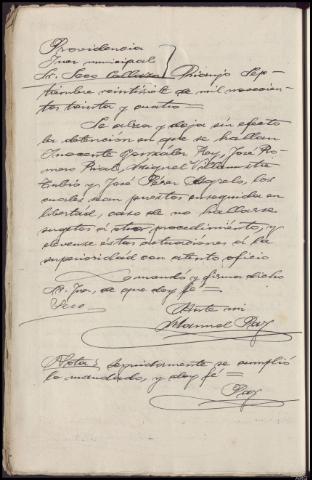 Providencia
Juez municipal
Sr. Seco Rianjo Sep-
tiembre veintisiete de mil novecien-
tos treinta y cuatro =
Se alza y deja sin efecto
la detención en que se hallan
Inocente González Rey, José Ro-
mero Miguel
Tubío y José Pérez los
cuales sean puestos enseguida en
libertad, caso de no hallarse
sugetos a otro procedimiento, y
elevense estas actuaciones a la
superioridad con atento oficio
Lo mandó y firma dicho
Sr. Juez, de que doy fé =
Seco
Ante mi
Manuel Rey
Nota: Seguidamente se cumplió
lo mandado, y doy fé =
Rey